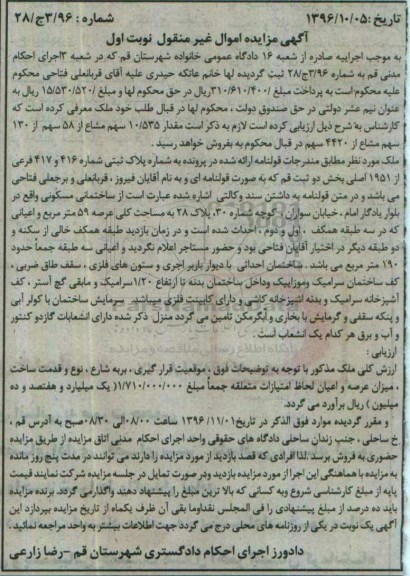 تاریخ: ۱۳۹۶/۱۰/۰۵ شماره: ۲۸/ج۳/۹۶
آگهی مزایده اموال غیر منقول نوبت اول
به موجب اجراییه صادره از شعبه ۱۶ دادگاه عمومی خانواده شهرستان قم که در شعبه ۳اجرای احکام
مدنی قم به شماره ۲۸/ج۳/۹۶ ثبت گردیده لها خانم عاتکه حیدری علیه آقای قربانعلی فتاحی محکوم
علیه محکوم است به پرداخت مبلغ /۳۱۰/۶۱۰/۴۰۰ریال در حق محکوم لها و مبلغ /۱۵/۵۳۰/۵۲۰ ریال به
عنوان نیم عشر دولتی در حق صندوق دولت ، محکوم لها در قبال طلب خود ملک معرفی کرده است که
کارشناس به شرح ذیل ارزیابی کرده است لازم به ذکر است مقدار ۱۰/۵۳۵ سهم مشاع از ۵۸ سهم از ۱۳۰
سهم مشاع از ۴۴۲۰ سهم در قبال محکوم به بفروش خواهد رسید .
ملک مورد نظر مطابق مندرجات قولنامه ارائه شده در پرونده به شماره پلاک ثبتی شماره ۴۱۶ و ۴۱۷ فرعی
از ۱۹۵۱ اصلی بخش دو ثبت قم که به صورت قولنامه ای و به نام آقایان فیروز ، قربانعلی و برجعلی فتاحی
می باشد و در متن قولنامه به داشتن سند وکالتی اشاره شده عبارت است از ساختمانی مسکونی واقع در
بلوار یادگار امام ، خیابان سواران ، کوچه شماره ۳۰، پلاک ۲۸ به مساحت کلی عرصه ۵۹ متر مربع و اعیانی
که در سه طبقه همکف ، اول و دوم ، احداث شده است و در زمان بازدید طبقه همکف خالی از سکنه و
دو طبقه دیگر در اختیار آقایان فتاحی بود و حضور مستاجر اعلام نگردید و اعیانی سه طبقه جمعاً حدود
۱۹۰ متر مربع می باشد . ساختمان احداثی با دیوار باربر اجری و ستون های فلزی ، سقف طاق ضربی ،
کف ساختمان سرامیک وموزاییک وداخل ساختمان بدنه تا ارتفاع ۱/۲۰سرامیک و مابقی گچ آستر ، کف
آشپزخانه سرامیک و بدنه اشپزخانه کاشی و دارای کابینت فلزی میباشد. سرمایش ساختمان با کولر آبی
و پنکه سقفی و گرمایش با بخاری وآبگرمکن تامین می گردد منزل ذکر شده دارای انشعابات گازدو کنتور
و آب و برق هر کدام یک انشعاب است .
ارزیابی :
ارزش کلی ملک مذکور با توجه به توضیحات فوق ، موقعیت قرار گیری ، بربه شارع ، نوع و قدمت ساخت
، میزان عرصه و اعیان لحاظ امتیازات متعلقه جمعاً مبلغ ۱/۷۱۰/۰۰۰/۰۰۰( یک میلیارد و هفتصد و ده
میلیون ) ریال برآورد می گردد.
و مقرر گردیده موارد فوق الذکر در تاریخ۱۳۹۶/۱۱/۰۱ ساعت ۰۸/۰۰الی ۰۸/۳۰صبح به آدرس قم ،
خ ساحلی ، جنب زندان ساحلی دادگاه های حقوقی واحد اجرای احکام مدنی اتاق مزایده از طریق مزایده
حضوری به فروش برسد .لذا افرادی که قصد بازدید از مورد مزایده را دارند می توانند در مدت پنج روز مانده
به مزایده با هماهنگی این اجرا از مورد مزایده بازدید ودر صورت تمایل در جلسه مزایده شرکت نمایند قیمت
پایه از مبلغ کارشناسی شروع وبه کسانی که بالا ترین مبلغ را پیشنهاد دهند واگذارمی گردد. برنده مزایده
باید ده درصد از مبلغ پیشنهادی را فی المجلس نقداوما بقی آن ظرف یکماه از تاریخ مزایده بپردازد این
آگهی یک نوبت در یکی از روزنامه های محلی درج می گردد جهت اطلاعات بیشتر به واحد مراجعه نمائید.
دادورز اجرای احکام دادگستری شهرستان قم -رضا زارعی